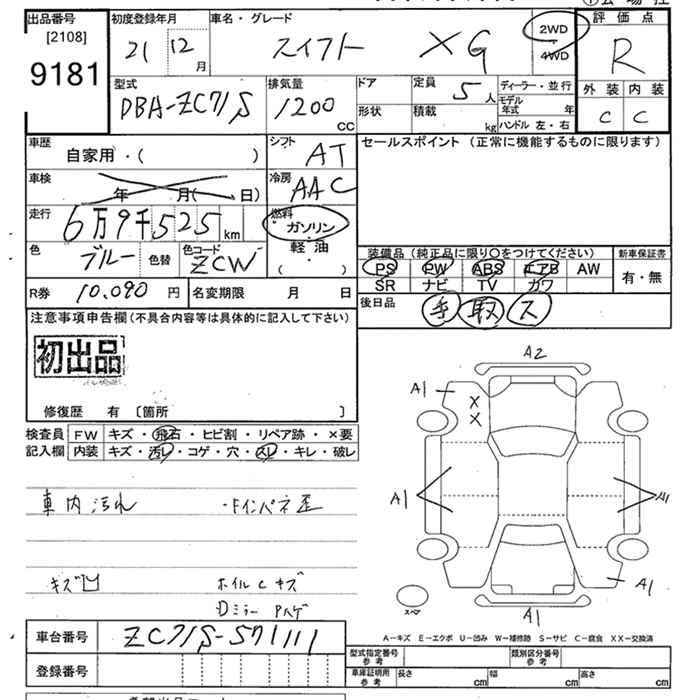 出品番号 初度登録年月 車名・グレード 評価点
[2108] 21 12 月 スイフト XG 2WD 4WD R
9181
型式 排気量 ドア 定員 ディーラー・並行 外装 内装
DBA-ZC71S 1200 CC 形状 積載 kg 5 人 モデル年式 年 C C
ハンドル 左・右
車歴 自家用・( ) シフト AT セールスポイント (正常に機能するものに限ります)
車検 年 月( 日) 冷房 AAC
走行 6万9千525 km 燃料 ガソリン
軽・油
・( )
色 ブルー 色替 色コード ZCW
装備品(純正品に限り○をつけてください) 新車保証書
PS PW ABS エアB AW 有・無
SR ナビ TV カワ
R券 10.090 円 名変期限 月 日 後日品 手 取 ス
注意事項申告欄(不具合内容等は具体的に記入して下さい)
初出品
修復歴 有 [箇所 ]
検査員 FW キズ・飛石・ヒビ割・リペア跡・×要
記入欄 内装 キズ・汚レ・コゲ・穴・スレ・キレ・破レ
A2
A1
X
X
車内汚れ
A1
キズ凹 ホイルCキズ
A1
Dミラー Pハゲ
スペア
A1
A-キズ E-エクボ U-凹み W-補修跡 S-サビ C-腐食 XX-交換済
車台番号 ZC71S-571111
型式指定番号 参考 類別区分番号 参考
登録番号 車庫証明用 参考 長さ cm 幅 cm 高さ cm